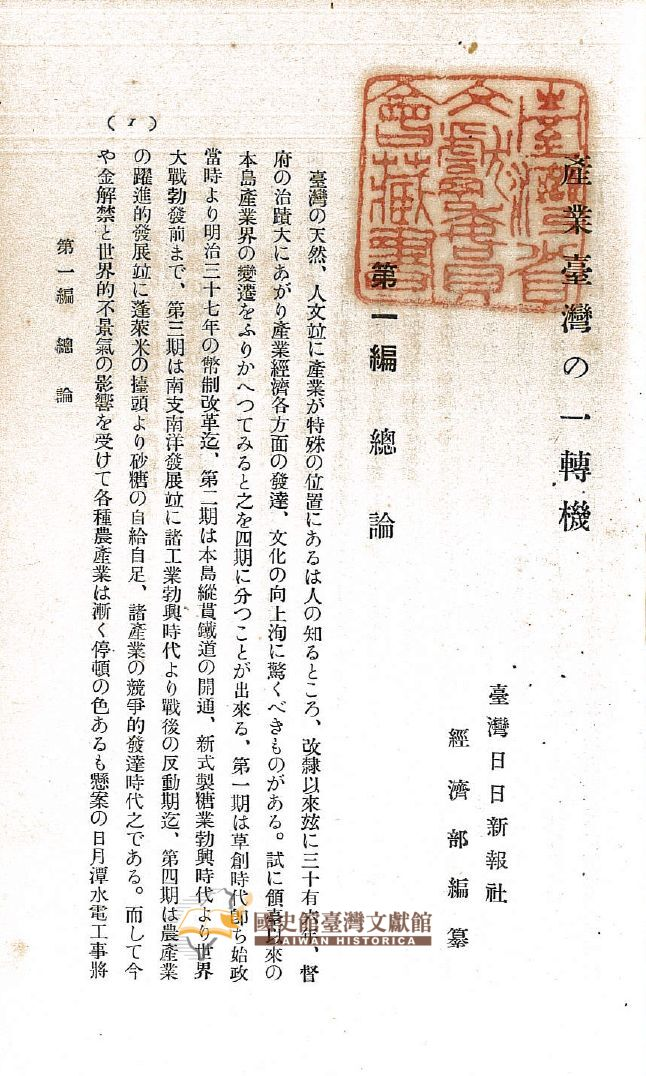 產業臺灣の一轉機
臺灣日日新報社
經濟部編纂
臺灣省
文獻委員
會藏書
第一編 總論
臺灣の天然、人文竝に產業が特殊の位置にあるは人の知るところ、改隸以來玆に三十有六年、督
府の治蹟大にあがり產業經濟各方面の發達、文化の向上洵に驚くべきものがある。試に領臺以來の
本島產業界の變遷をふりかへつてみると之を四期に分つことが出來る、第一期は草創時代卽ち始政
當時より明治三十七年の幣制改革迄、第二期は本島縱貫鐵道の開通、新式製糖業勃興時代より世界
大戰勃發前まで、第三期は南支南洋發展竝に諸工業勃興時代より戰後の反動期迄、第四期は農產業
の躍進的發展竝に蓬萊米の擡頭より砂糖の自給自足、諸產業の競爭的發達時代之である。而して今
や金解禁と世界的不景氣の影響を受けて各種農產業は漸く停頓の色あるも懸案の日月潭水電工事將
第一編 總論
(1)
國史館臺灣文獻館
TAIWAN HISTORICA